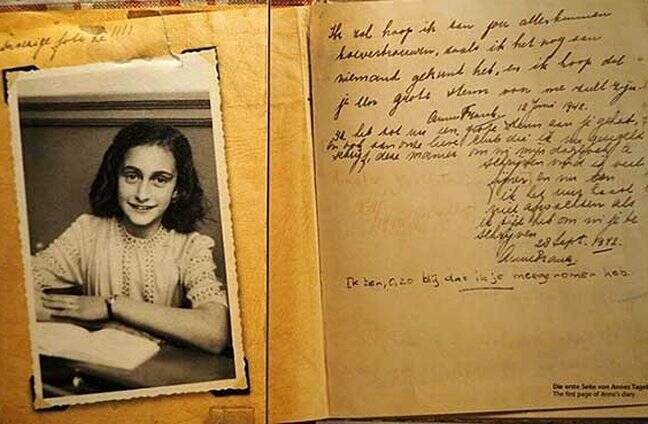 foto hè !!!!
Ik zal hoop ik aan jou alles kunnen
toevertrouwen, zoals ik het nog aan
niemand gekund heb, en ik hoop dat
je een grote steun voor me zult zijn.
Anne Frank. 12 Juni 1942.
Ik heb tot nu een grote steun aan je gehad,
en ook aan onze lieve club die ik nu geregeld
schrijf, deze manier om in mijn dagboek te
schrijven vind ik veel
fijner en nu kan
ik het uur haast
niet afwachten als
ik tijd heb om in je te
schrijven.
28 Sept. 1942.
Anne Frank.
Ik ben, O, zo blij dat ik je meegenomen heb.
Die erste Seite von Annes
The first page of Anne's diary